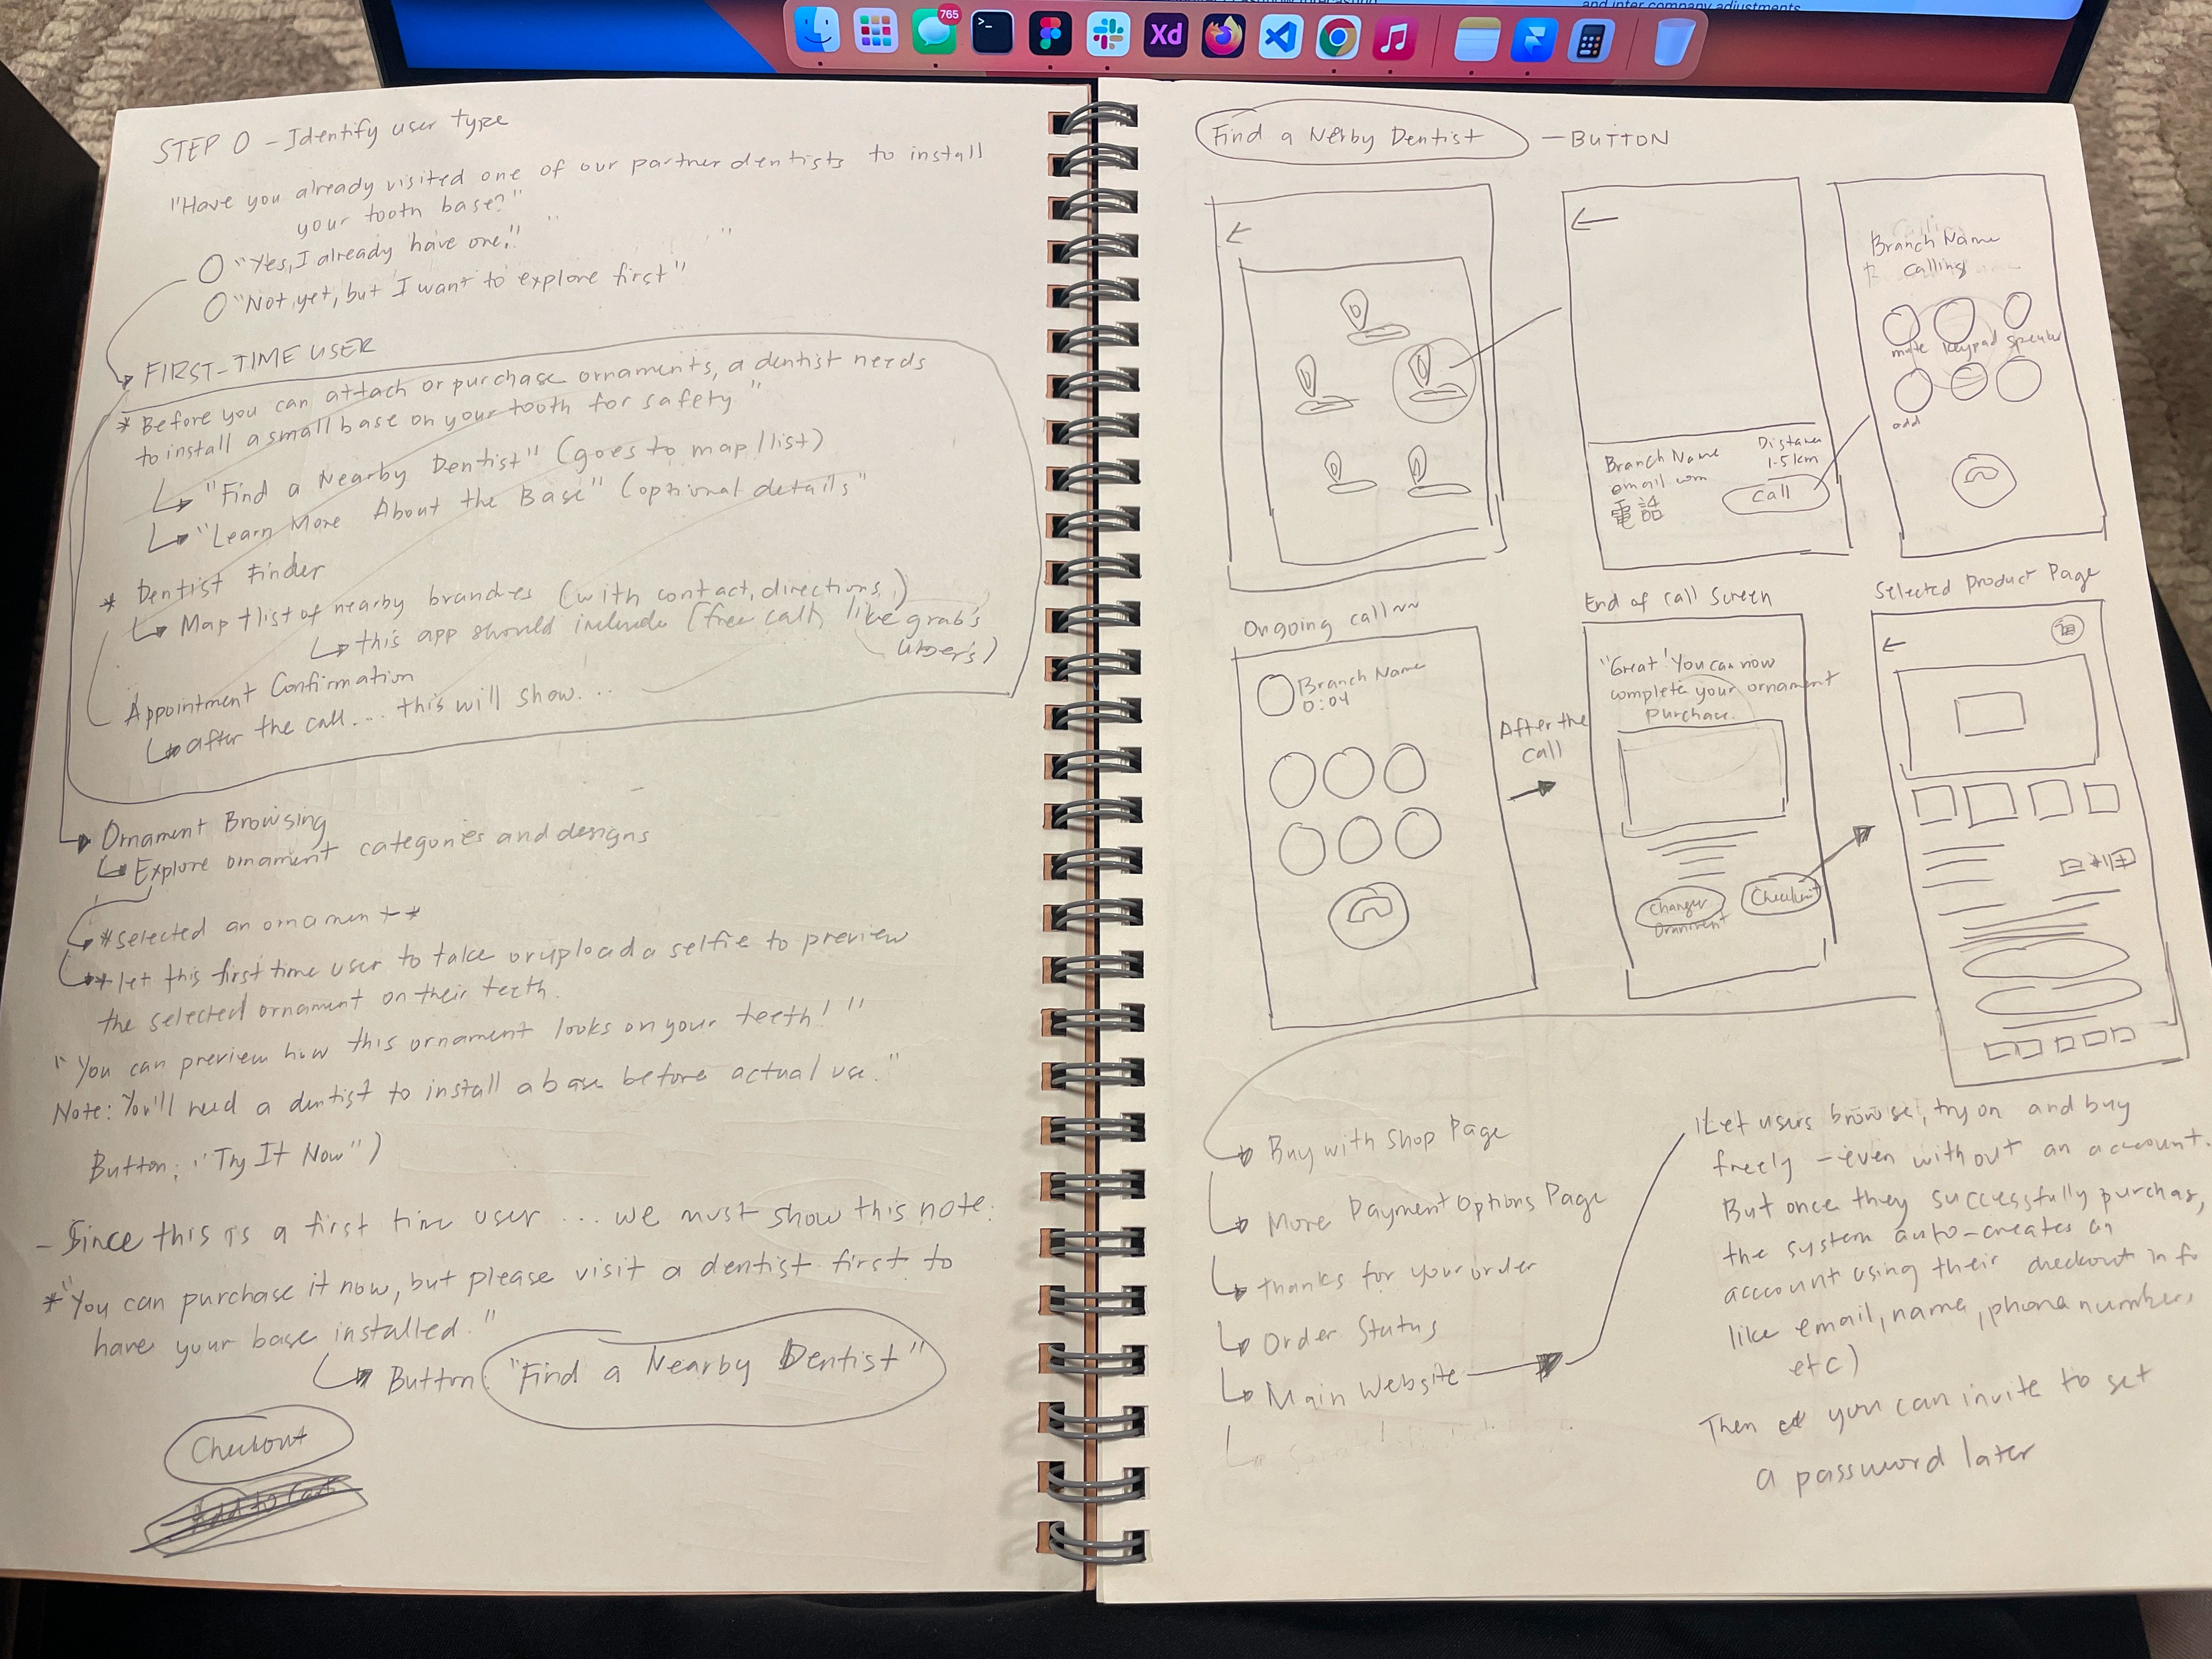 and inter company adjustments
765
Xd
STEP 0 - Identify user type
"Have you already visited one of our partner dentists to install
your tooth base?"
"Yes, I already have one."
"Not yet, but I want to explore first"
FIRST-TIME USER
* Before you can attach or purchase ornaments, a dentist needs
to install a small base on your tooth for safety."
"Find a Nearby Dentist" (goes to map/list)
"Learn More About the Base" (optional details"
* Dentist Finder
Map + list of nearby branches (with contact, directions,)
this app should include (free call, like grab's
uber's)
Appointment Confirmation
after the call... this will show...
Ornament Browsing
Explore ornament categories and designs
*selected an ornament*
*let this first time user to take or upload a selfie to preview
the selected ornament on their teeth.
"You can preview how this ornament looks on your teeth!"
Note: You'll need a dentist to install a base before actual use."
Button: "Try It Now")
- Since this is a first time user ... we must show this note:
*"You can purchase it now, but please visit a dentist first to
have your base installed."
Button: "Find a Nearby Dentist"
Checkout
Add to Cart
Find a Nerby Dentist - BUTTON
Branch Name
email
電話
Distance
1.5 km
Call
Branch Name
Calling
mute keypad speaker
add
Ongoing call~~
Branch Name
0:04
After the
call
End of call Screen
"Great! You can now
complete your ornament
purchase.
Change
Ornament
Checkout
Selected Product Page
Buy with Shop Page
More Payment Options Page
Thanks for your order
Order Status
Main Website
(Let users browse, try on and buy
freely - even without an account.
But once they successfully purchas,
the system auto-creates an
account using their checkout info
like email, name, phone number,
etc)
Then you can invite to set
a password later